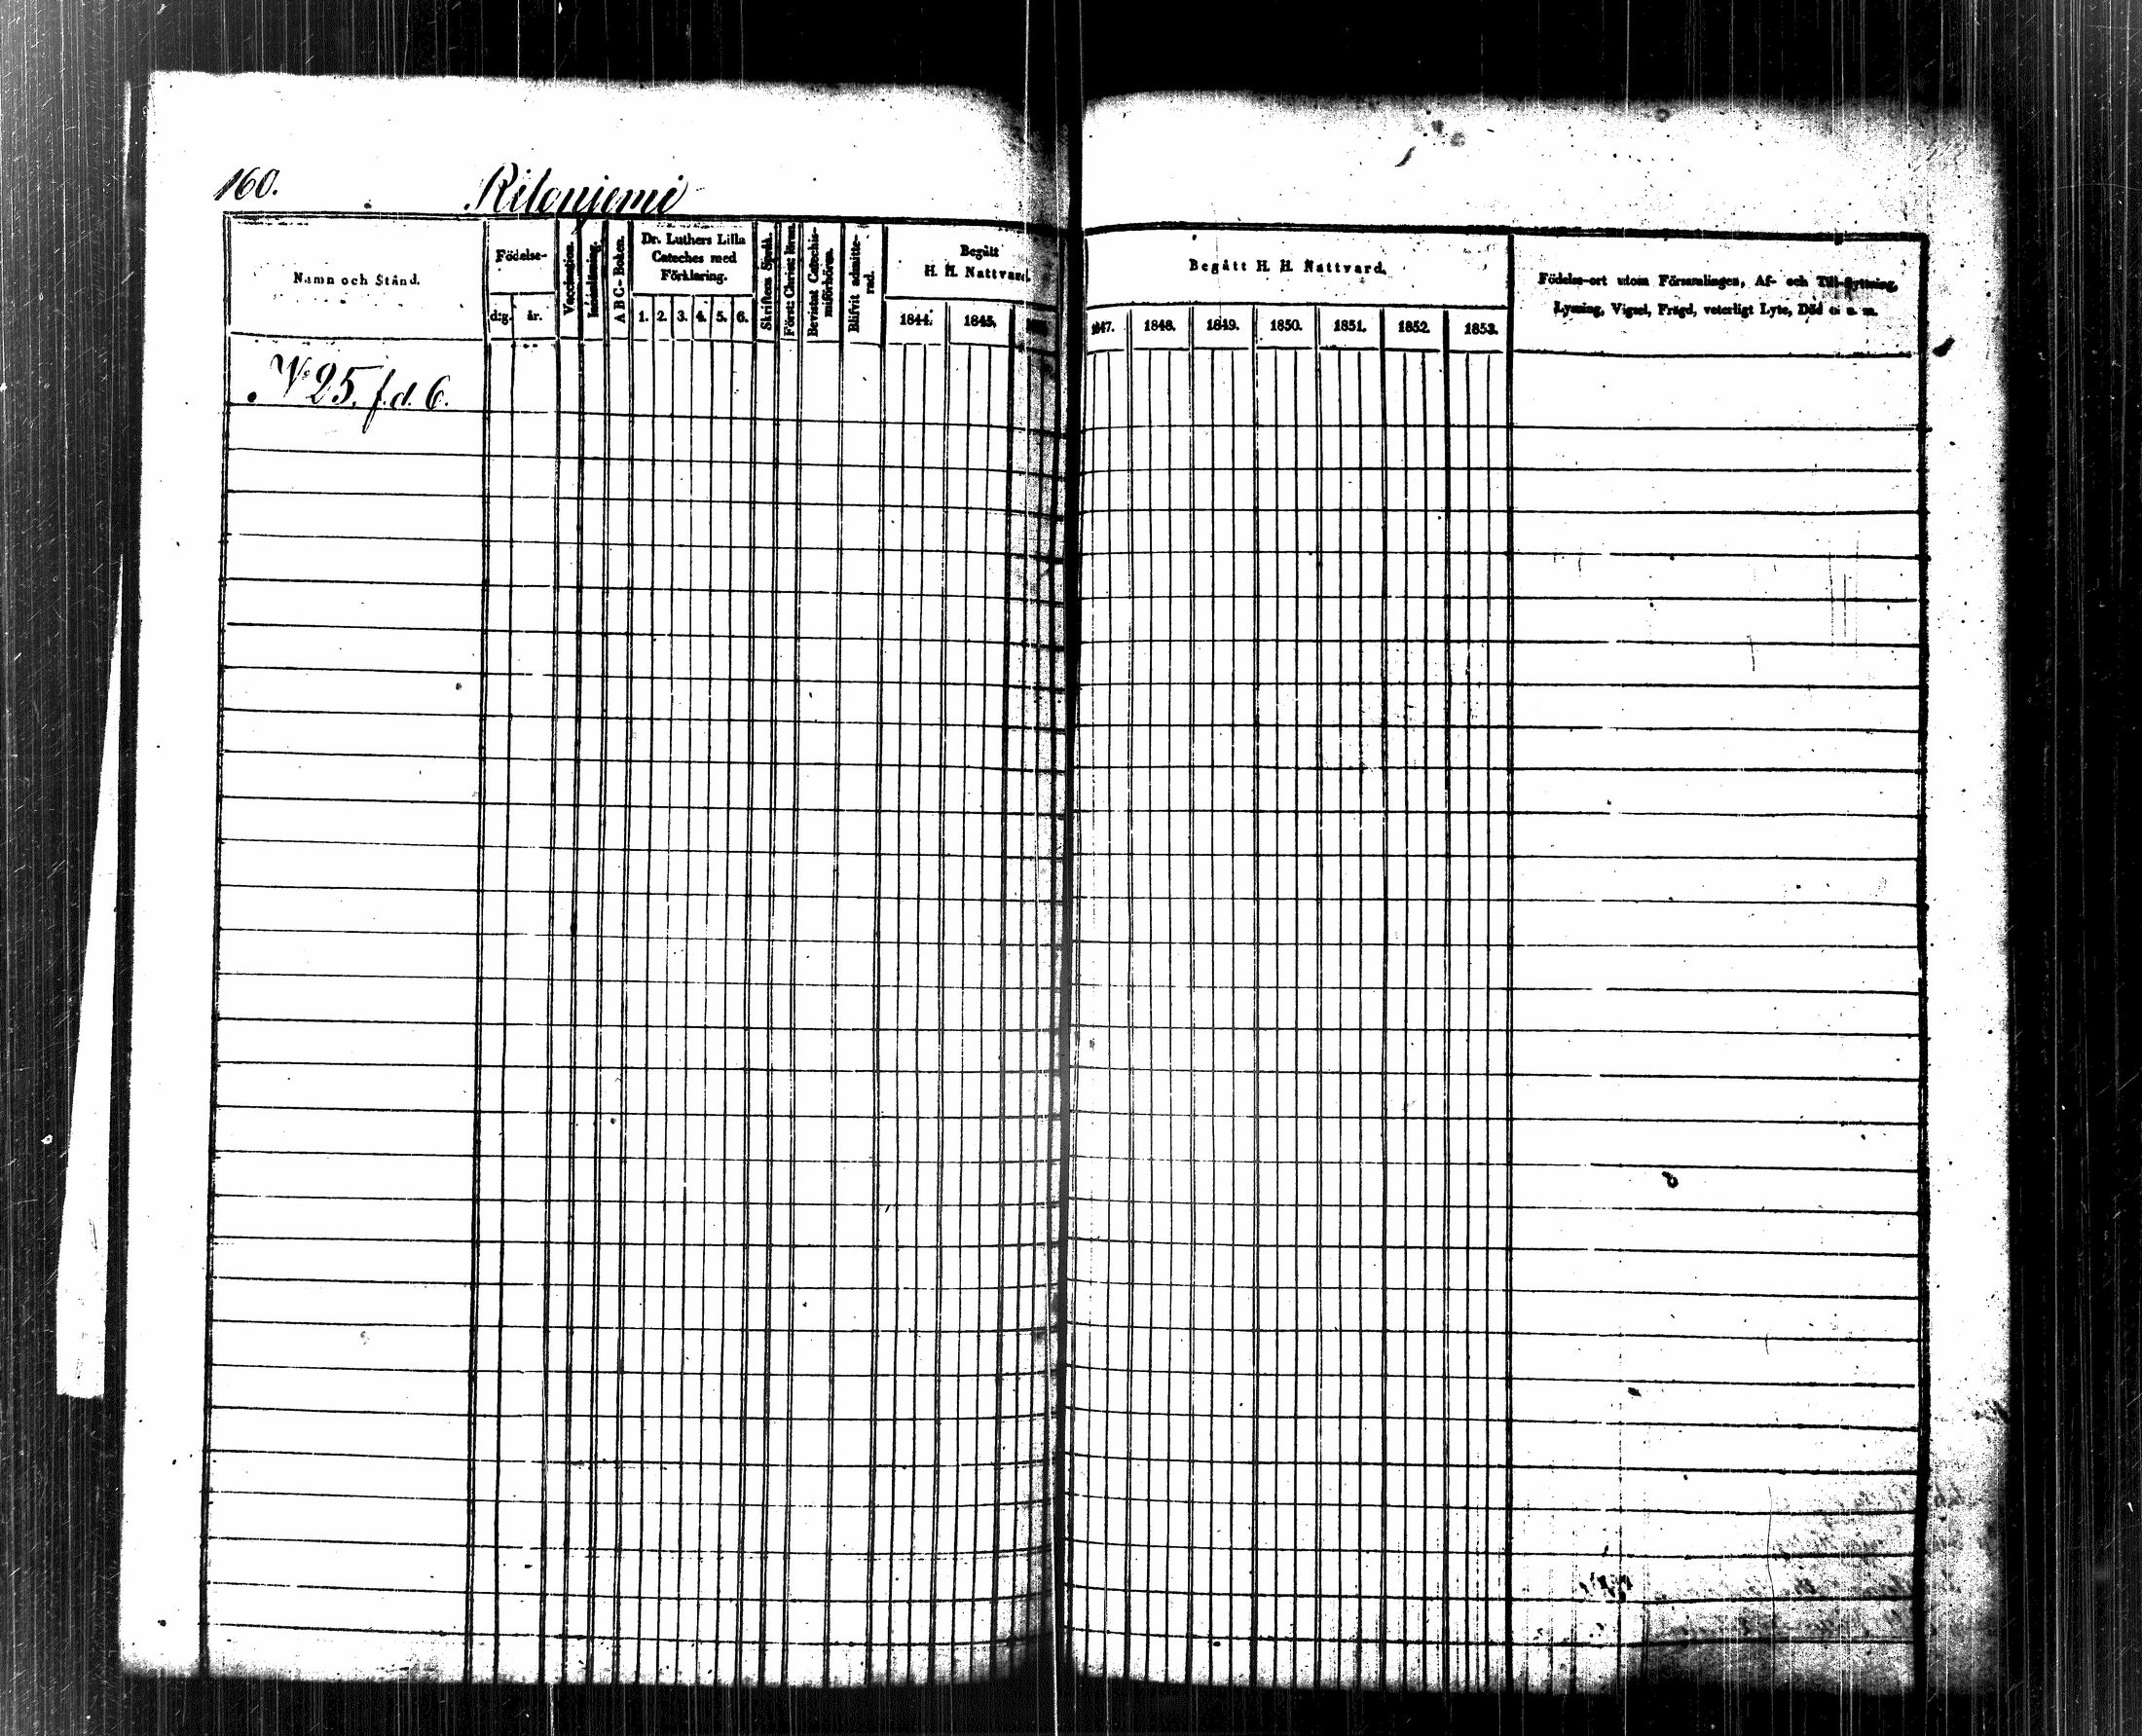 160. Ritoniemi
Namn och Stånd.
Födelse-
dag. år.
Vaccination.
Innanläsning.
A B C-Boken.
Dr. Luthers Lilla
Cateches med
Förklaring.
1. 2. 3. 4. 5. 6.
Skriftens Språk.
Först: Christ: lifvet
Bevistat Catechis-
miförhören.
Blifvit admitte-
rad.
Begått
H. H. Nattvard.
1844. 1845.
Begått H. H. Nattvard.
1847. 1848. 1849. 1850. 1851. 1852. 1853.
Födelse-ort utom Församlingen, Af- och Till-flyttning,
Lysning, Vigsel, Frägd, veterligt Lyte, Död o. s. m.
No 25. f.d. 6.